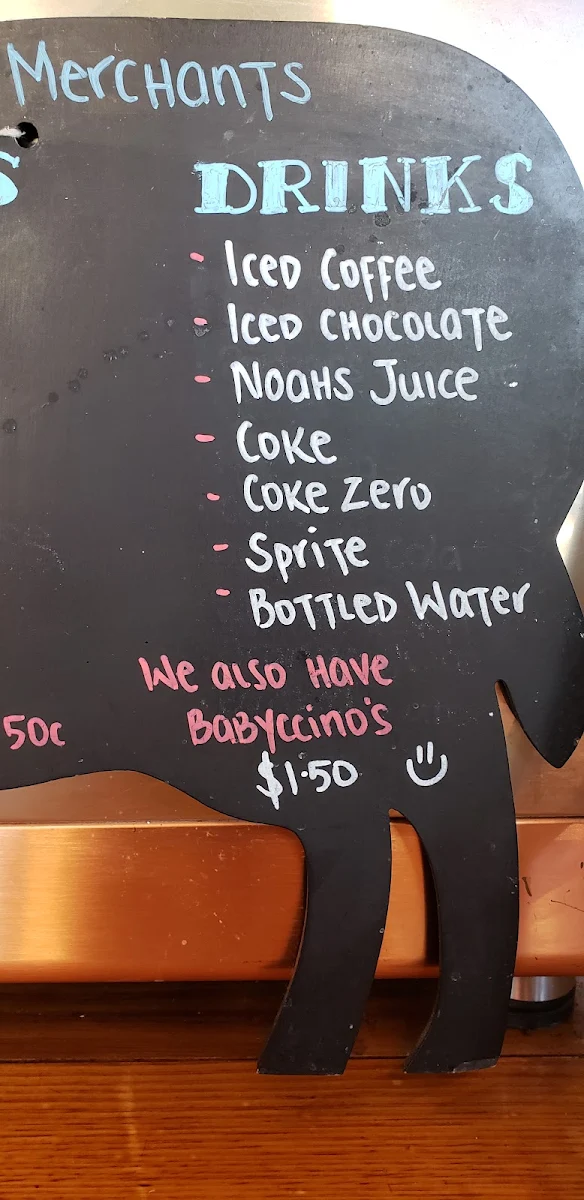 Merchants
DRINKS
- Iced Coffee
- Iced Chocolate
- Noahs Juice
- Coke
- Coke Zero
- Sprite
- Bottled Water
We also have
Babyccino's
50c
$1.50